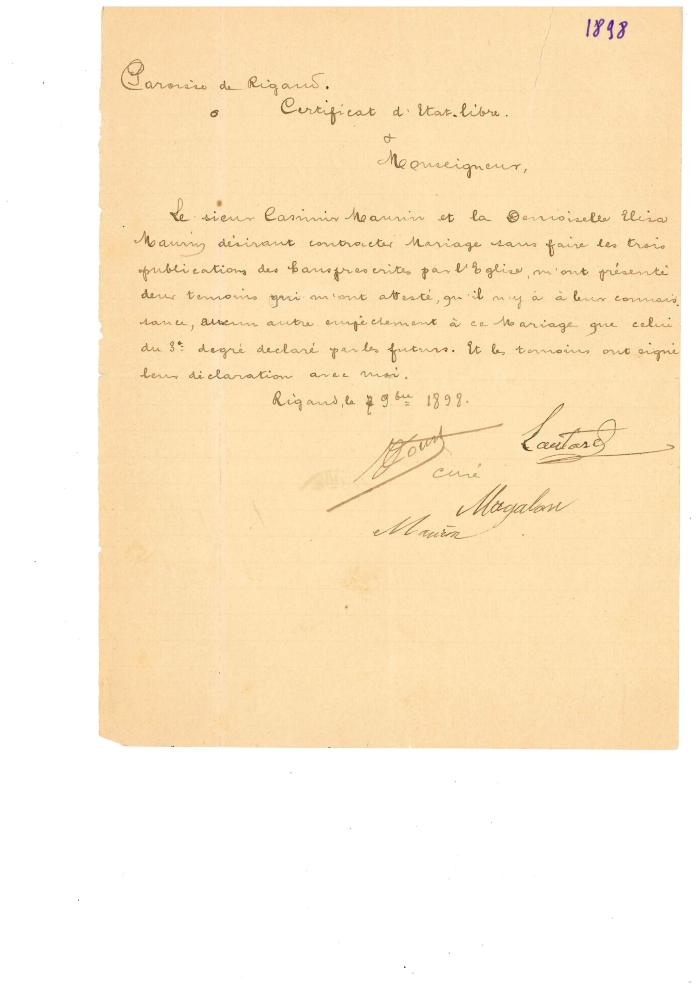 1898
Paroisse de Rigaud.
Certificat d'Etat-libre.
Monseigneur,
Le sieur Casimir Maurin et la Demoiselle Elisa
Maurin désirant contracter Mariage sans faire les trois
publications des bans prescrites par l'Eglise, m'ont présenté
deux temoins qui m'ont attesté, qu'il n'y à à leur connais
sance, aucun autre empêchement à ce Mariage que celui
du 3e degré declaré par les futurs. Et les temoins ont signé
leur déclaration avec moi.
Rigaud, le 9bre 1898.
Lautard
curé
Magalon
Maurin